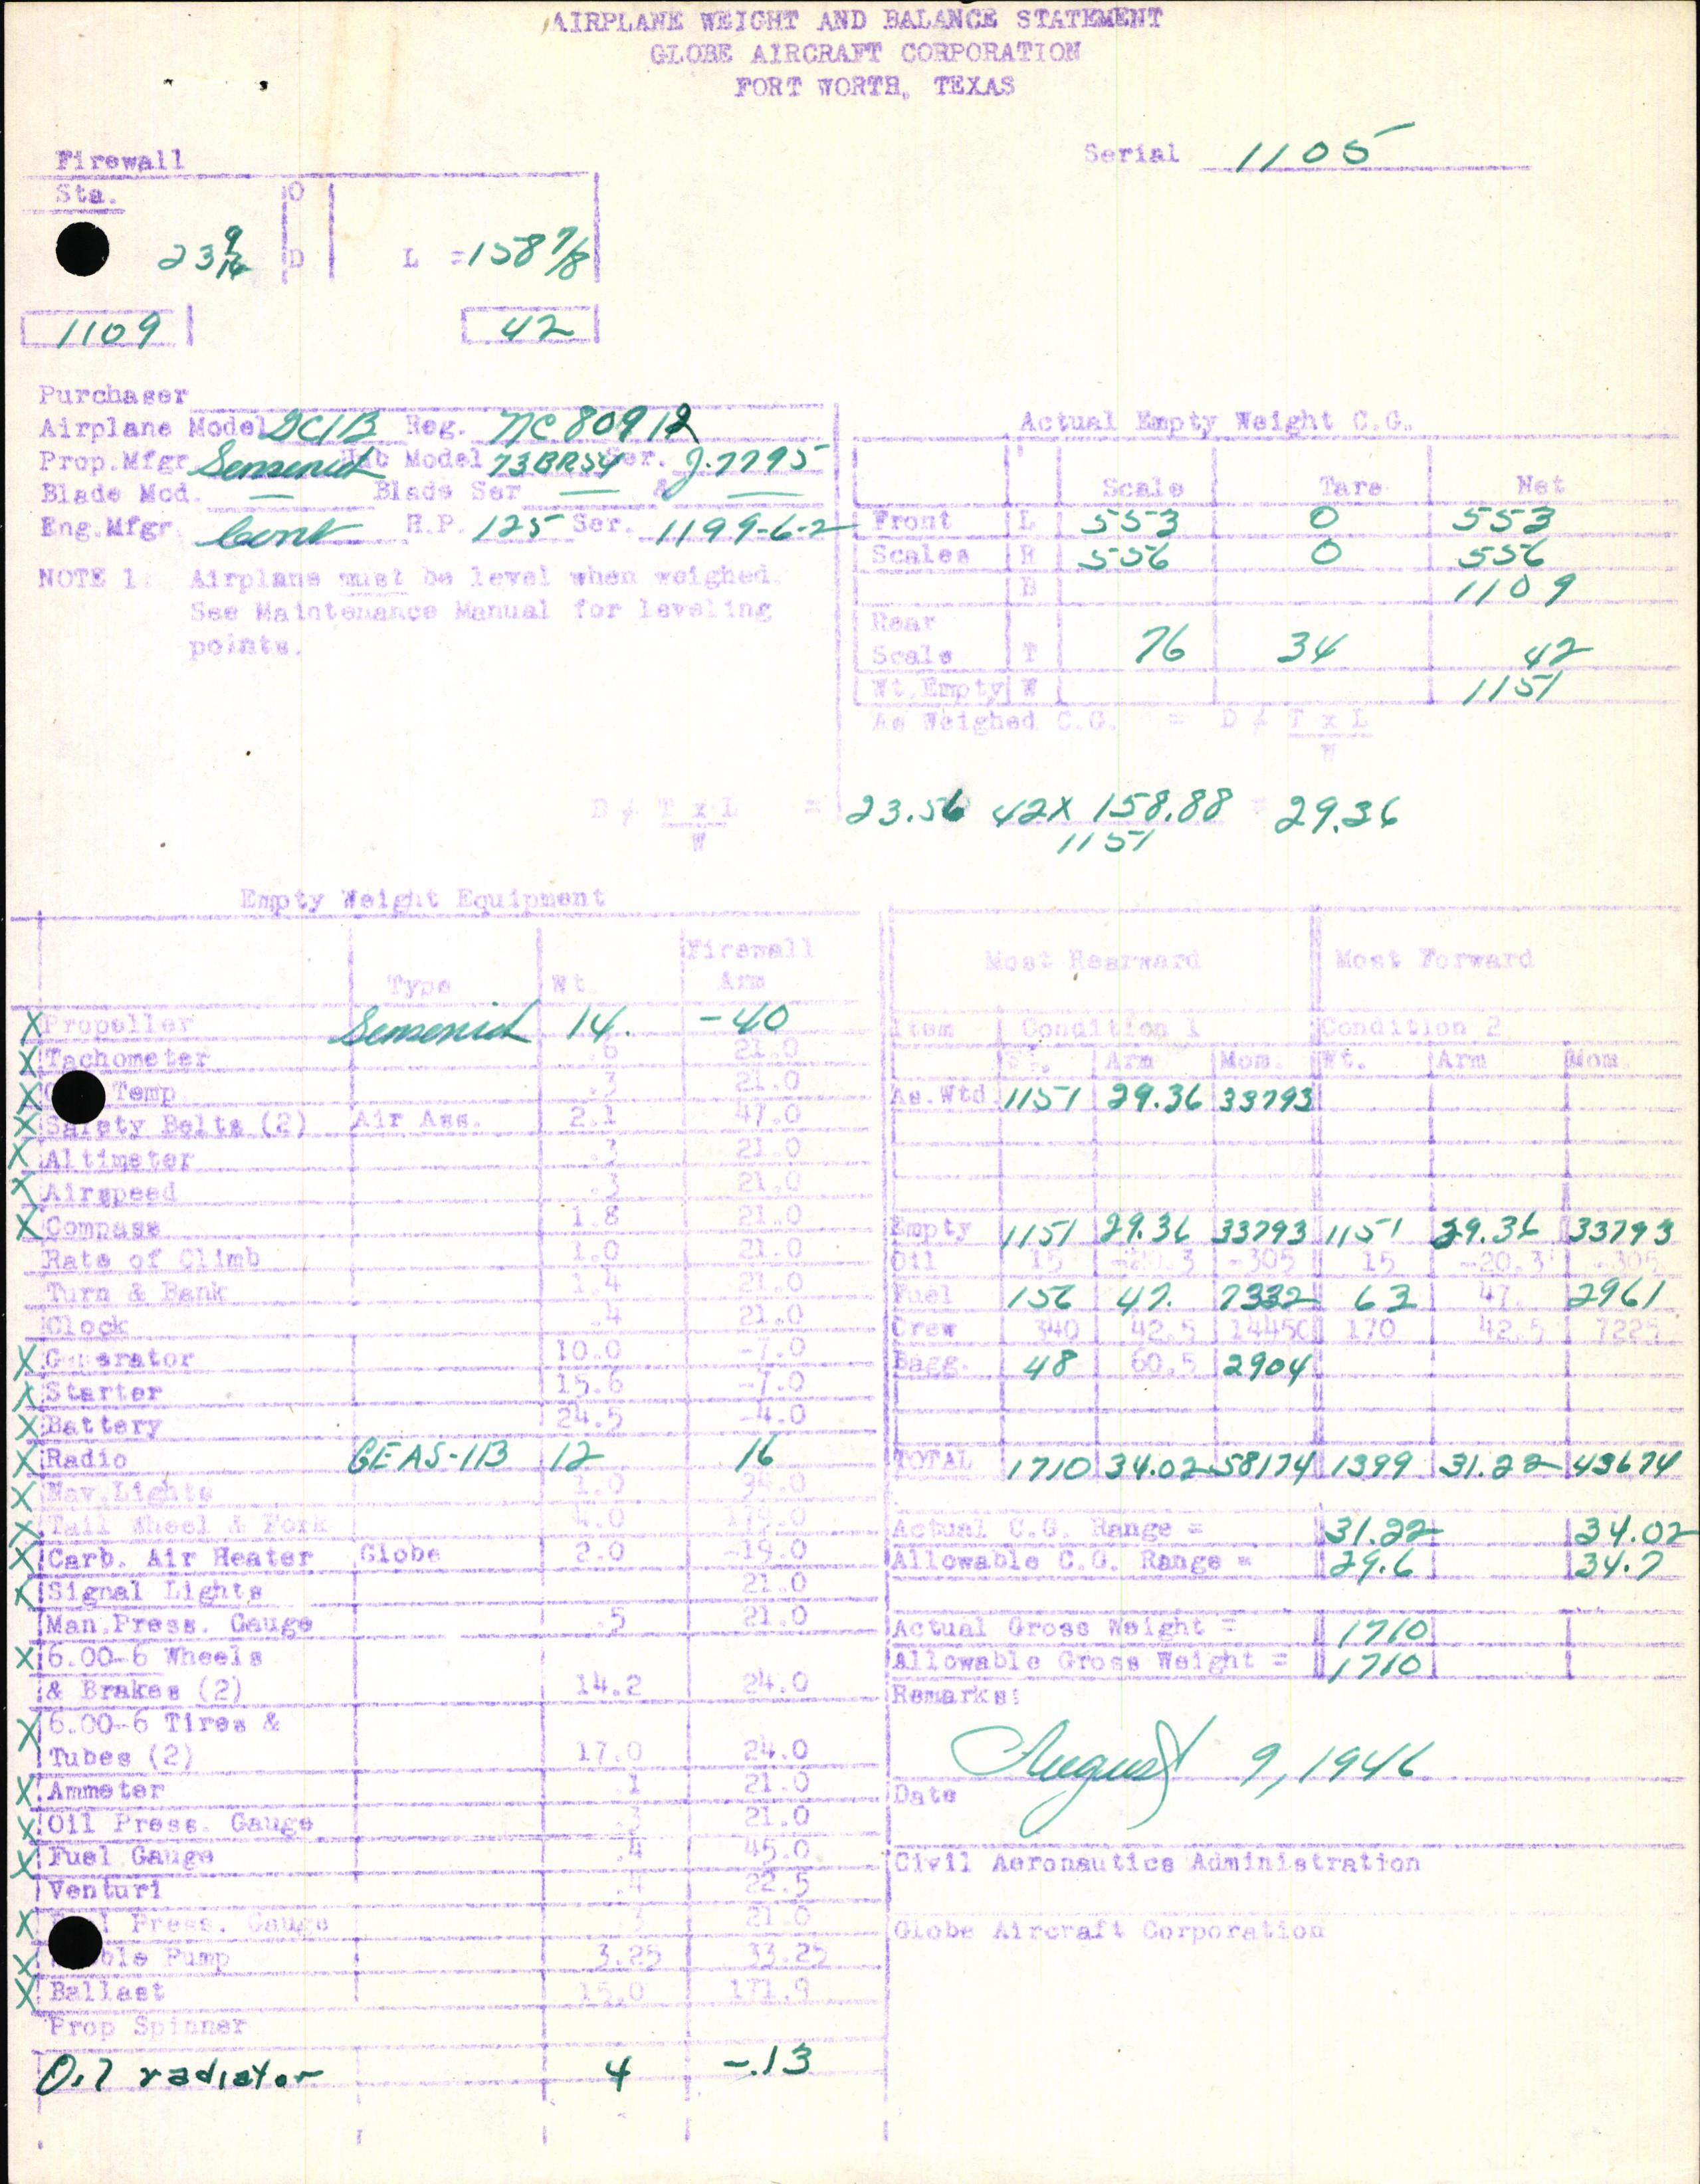 AIRPLANE WEIGHT AND BALANCE STATEMENT
GLOBE AIRCRAFT CORPORATION
FORT WORTH, TEXAS
Serial 1105
Firewall
Sta. O
23 9/16 D L = 158 7/8
1109 42
Purchaser
Airplane Model GC1B Reg. NC 80912
Prop.Mfgr Sensenich Hub Model 73BR54 Ser. J.7795
Blade Mod. — Blade Ser — & —
Eng.Mfgr. Cont H.P. 125 Ser. 1199-6-2
NOTE 1. Airplane must be level when weighed.
See Maintenance Manual for leveling
points.
Actual Empty Weight C.G.
Scale Tare Net
Front L 553 0 553
Scales R 556 0 556
B 1109
Rear
Scale T 76 34 42
Wt.Empty W 1151
As Weighed C.G. = D ≠ T x L
W
D ≠ T x L = 23.56 42 X 158.88 = 29.36
W 1151
Empty Weight Equipment
Type Wt. Firewall Arm
X Propeller Sensenich 14. -40
X Tachometer .6 21.0
X Temp .3 21.0
X Safety Belts (2) Air Ass. 2.1 47.0
X Altimeter .3 21.0
X Airspeed .3 21.0
X Compass 1.8 21.0
Rate of Climb 1.0 21.0
Turn & Bank 1.4 21.0
Clock .4 21.0
X Generator 10.0 -7.0
X Starter 15.6 -7.0
X Battery 24.5 -4.0
X Radio GE AS-11B 12 16
X Nav.Lights 1.0
X Tail Wheel & Fork 4.0
X Carb. Air Heater Globe 2.0 -19.0
X Signal Lights 21.0
Man.Press. Gauge .5 21.0
X 6.00-6 Wheels
& Brakes (2) 14.2 24.0
X 6.00-6 Tires &
Tubes (2) 17.0 24.0
X Ammeter .1 21.0
X Oil Press. Gauge .3 21.0
X Fuel Gauge .4 45.0
Venturi .4 22.5
X Press. Gauge 21.0
X Pump 3.25 33.25
X Ballast 15.0 171.9
Prop Spinner
Oil radiator 4 -.13
Most Rearward Most Forward
Item Condition 1 Condition 2
Wt. Arm Mom. Wt. Arm Mom.
As.Wtd 1151 29.36 33793
Empty 1151 29.36 33793 1151 29.36 33793
Oil 15 -20.3 -305 15 -20.3 -305
Fuel 156 47. 7332 63 47. 2961
Crew 340 42.5 14450 170 42.5 7225
Bagg. 48 60.5 2904
TOTAL 1710 34.02 58174 1399 31.22 43674
Actual C.G. Range = 31.22 34.02
Allowable C.G. Range = 29.6 34.7
Actual Gross Weight = 1710
Allowable Gross Weight = 1710
Remarks:
August 9, 1946
Date
Civil Aeronautics Administration
Globe Aircraft Corporation